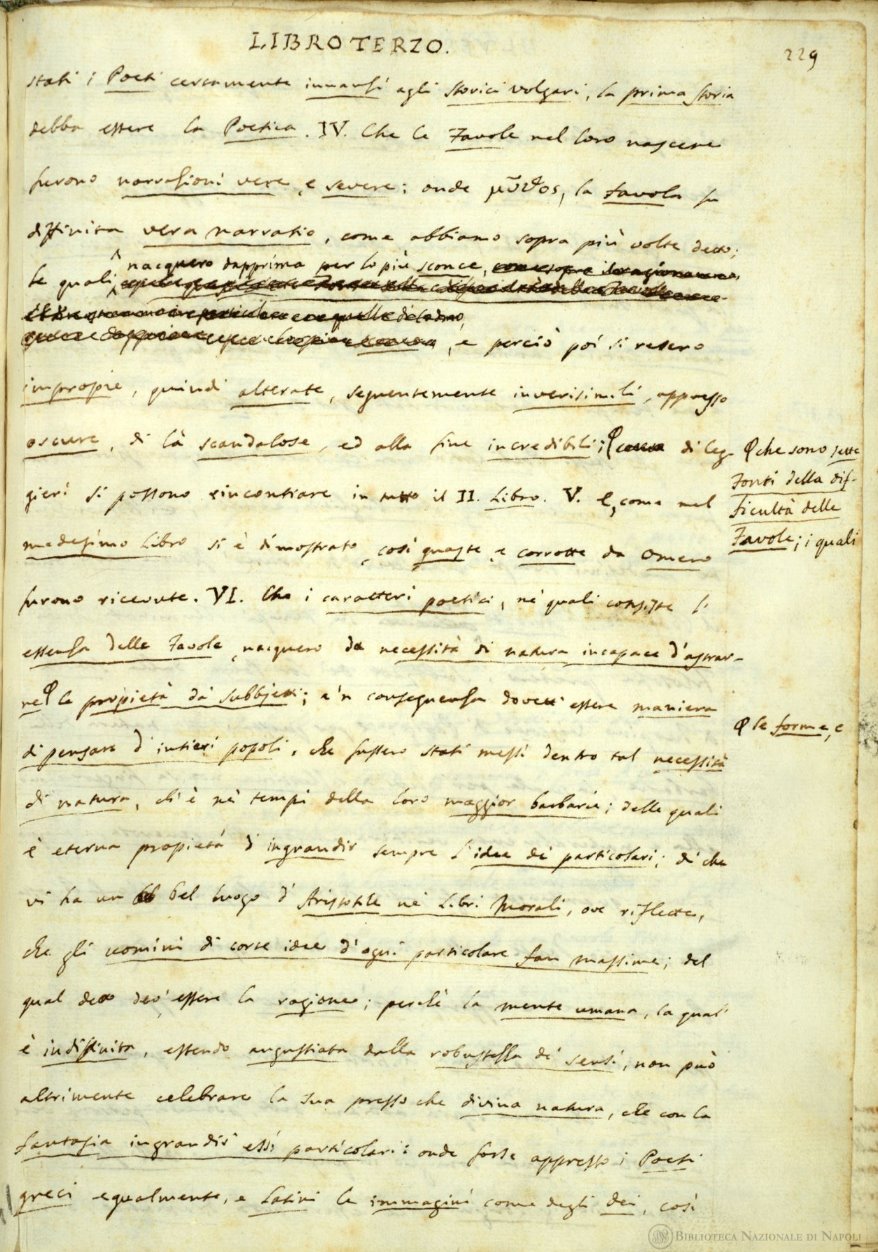 LIBRO TERZO.
229
stati i Poeti certamente innanzi agli storici volgari, la prima storia
debba essere la Poetica. IV. Che le Favole nel loro nascere
furono narrazioni vere, e severe; onde μῦθος, la favola fu
diffinita vera narratio, come abbiamo sopra più volte detto;
le quali nacquero dapprima per lo più sconce,
, e perciò poi si resero
impropie, quindi alterate, seguentemente inverisimili, appresso
oscure, di là scandalose, ed alla fine incredibili; di leg-
φ che sono sette
Fonti della dif-
ficultà delle
Favole; i quali
gieri si possono rincontrare in tutto il II. Libro. V. E, come nel
medesimo Libro si è dimostrato, così guaste, e corrotte da Omero
furono ricevute. VI. Che i caratteri poetici, ne' quali consiste l'
essenza delle Favole, nacquero da necessità di natura incapace d'astrar-
ne φ le propietà da' subbjetti; e 'n conseguenza dovett' essere maniera
φ le forme, e
di pensare d' intieri popoli, che fussero stati messi dentro tal necessità
di natura, ch' è ne' tempi della loro maggior barbarie; delle quali
è eterna propietà d' ingrandir sempre l' idee de' particolari; di che
vi ha un bel luogo d' Aristotile ne' Libri Morali, ove riflette,
che gli uomini di corte idee d' ogni particolare fan massime; del
qual detto dev' essere la ragione; perchè la mente umana, la qual'
è indiffinita, essendo angustiata dalla robustezza de' sensi, non può
altrimente celebrare la sua presso che divina natura, che con la
fantasia ingrandir' essi particolari: onde forse appresso i Poeti
greci egualmente, e Latini le immagini come degli dei, così
BIBLIOTECA NAZIONALE DI NAPOLI